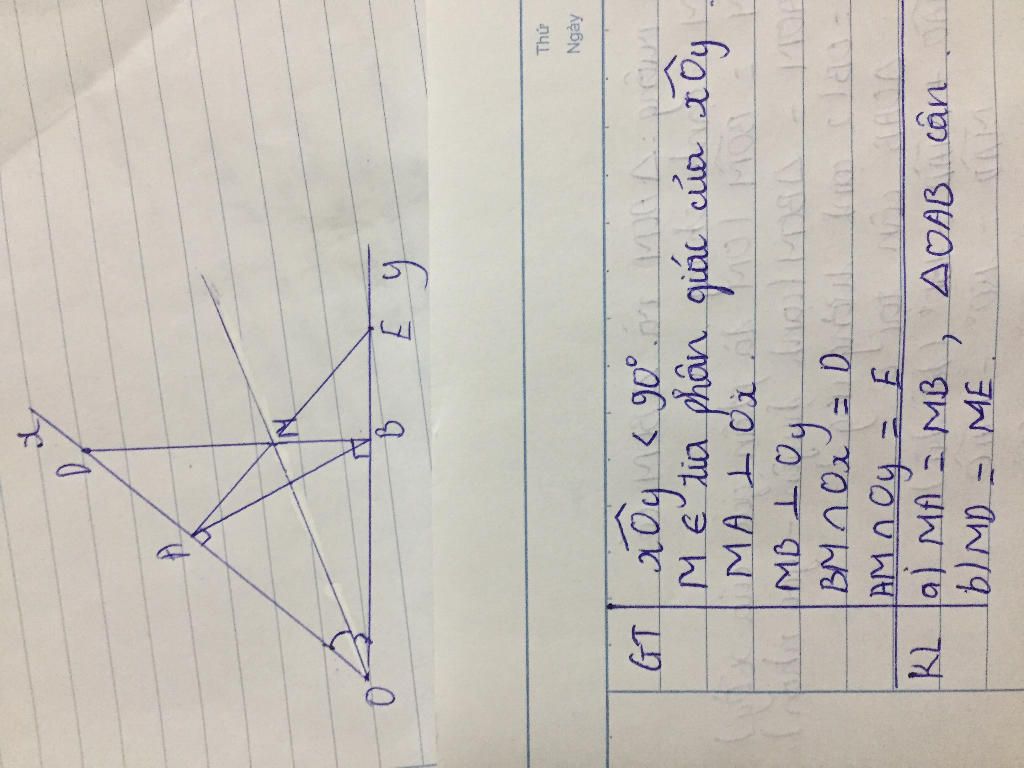 x
D
A
M
O
B
E
y
Thứ
Ngày
GT
xOy < 90°
M ∈ tia phân giác của xOy
MA ⊥ Ox
MB ⊥ Oy
BM ∩ Ox = D
AM ∩ Oy = E
KL a) MA = MB, △OAB cân
b) MD = ME